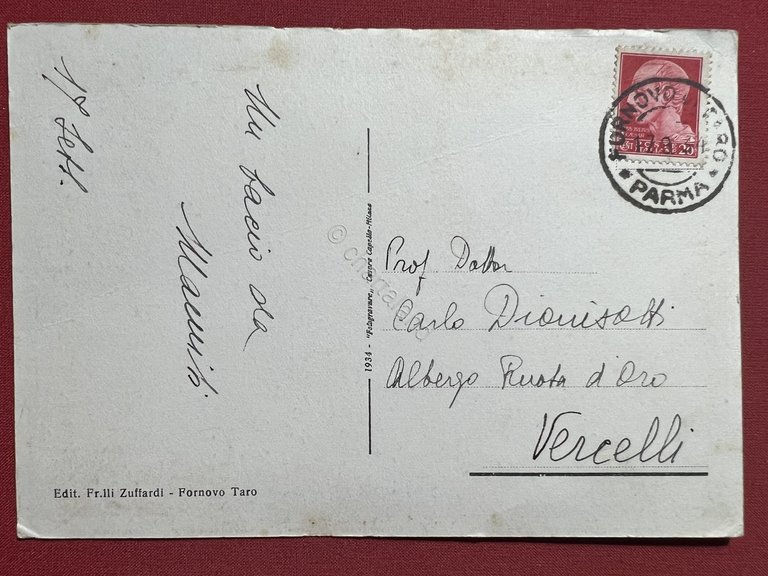 17 Sett.
Un bacio da
FORNOVO TARO
17.9.34
PARMA
Prof Dottor
Carlo Dionisotti
Albergo Ruota d'Oro
Vercelli
1934 - "Fotogravure" Cesare Capello-Milano
Edit. Fr.lli Zuffardi - Fornovo Taro